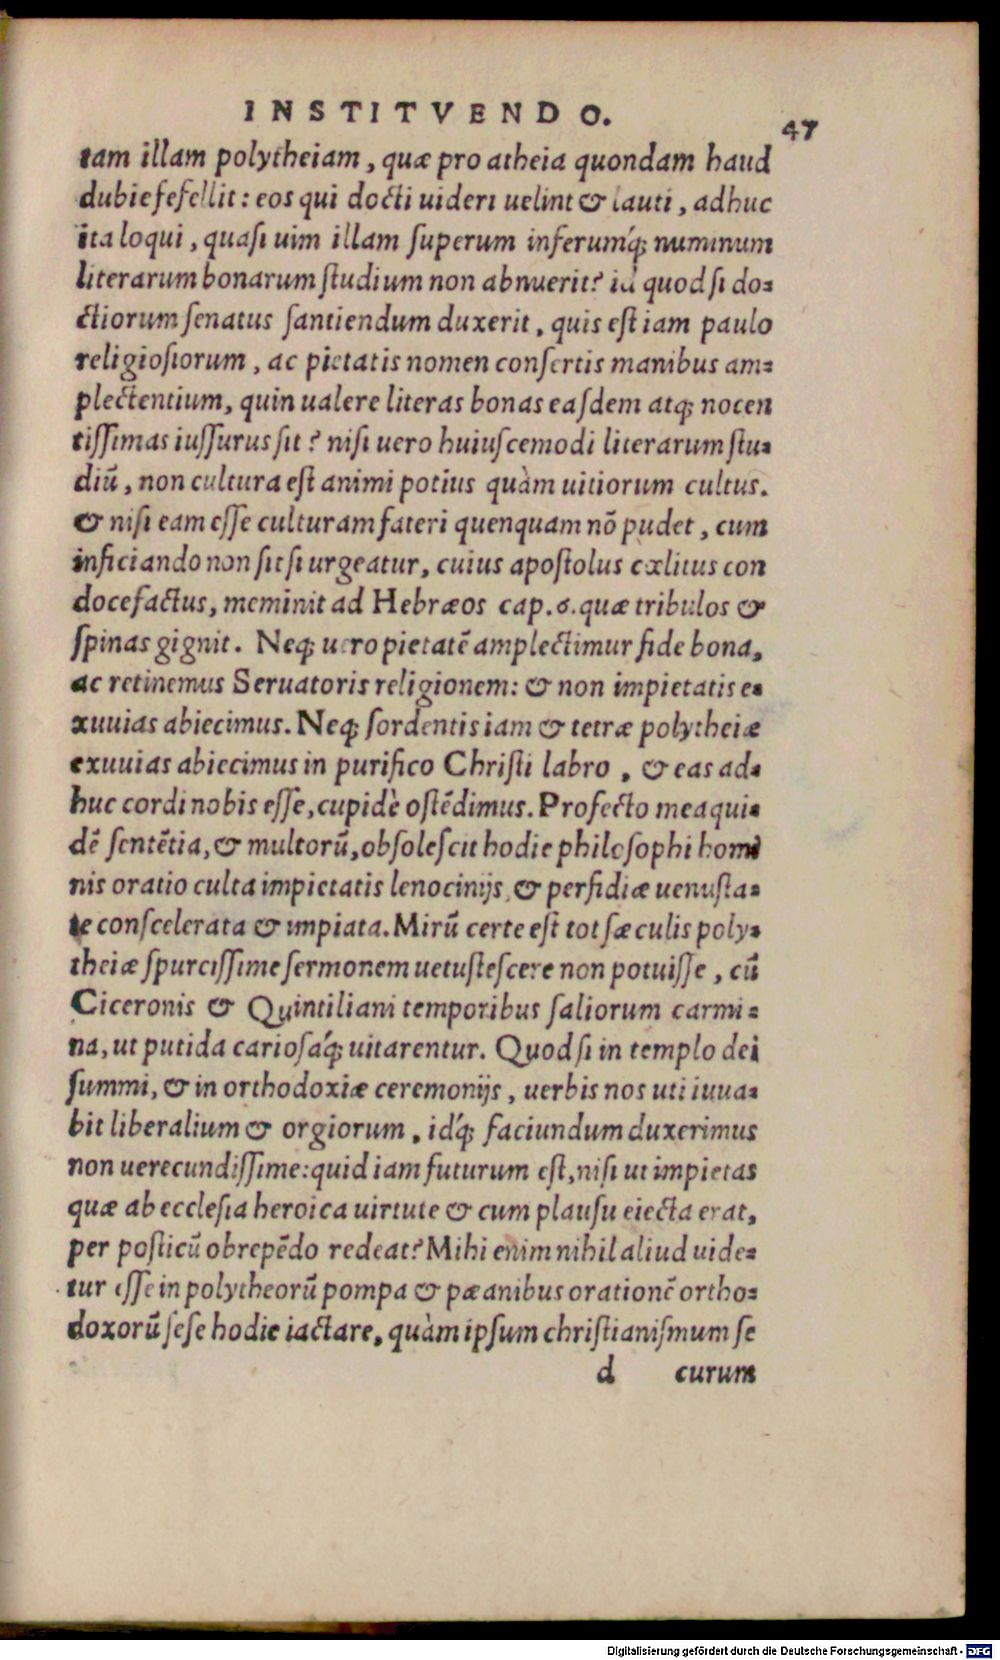 INSTITVENDO.
47
tam illam polytheiam, quæ pro atheia quondam haud
dubie fefellit: eos qui docti uideri uelint & lauti, adhuc
ita loqui, quasi uim illam superum inferumq́; numinum
literarum bonarum studium non abnuerit? id quod si do=
ctiorum senatus santiendum duxerit, quis est iam paulo
religiosiorum, ac pietatis nomen consertis manibus am=
plectentium, quin ualere literas bonas easdem atq; nocen
tissimas iussurus sit? nisi uero huiuscemodi literarum stu=
diũ, non cultura est animi potius quàm uitiorum cultus.
& nisi eam esse culturam fateri quenquam nõ pudet, cum
inficiando non sit si urgeatur, cuius apostolus cælitus con
docefactus, meminit ad Hebræos cap.6. quæ tribulos &
spinas gignit. Neq; uero pietatẽ amplectimur fide bona,
ac retinemus Seruatoris religionem: & non impietatis e=
xuuias abiecimus. Neq; sordentis iam & tetræ polytheiæ
exuuias abiecimus in purifico Christi labro, & eas ad=
huc cordi nobis esse, cupidè ostẽdimus. Profecto mea qui=
dẽ sentẽtia, & multorũ, obsolescit hodie philosophi homi
nis oratio culta impietatis lenocinijs, & perfidiæ uenusta=
te conscelerata & impiata. Mirũ certe est tot sæculis poly=
theiæ spurcissime sermonem uetustescere non potuisse, cũ
Ciceronis & Quintiliani temporibus saliorum carmi=
na, ut putida cariosaq́; uitarentur. Quod si in templo dei
summi, & in orthodoxiæ ceremonijs, uerbis nos uti iuua=
bit liberalium & orgiorum, idq́; faciundum duxerimus
non uerecundissime: quid iam futurum est, nisi ut impietas
quæ ab ecclesia heroica uirtute & cum plausu eiecta erat,
per posticũ obrepẽdo redeat? Mihi enim nihil aliud uide=
tur esse in polytheorũ pompa & pæanibus orationẽ ortho=
doxorũ sese hodie iactare, quàm ipsum christianismum se
d curum
Digitalisierung gefördert durch die Deutsche Forschungsgemeinschaft - DFG